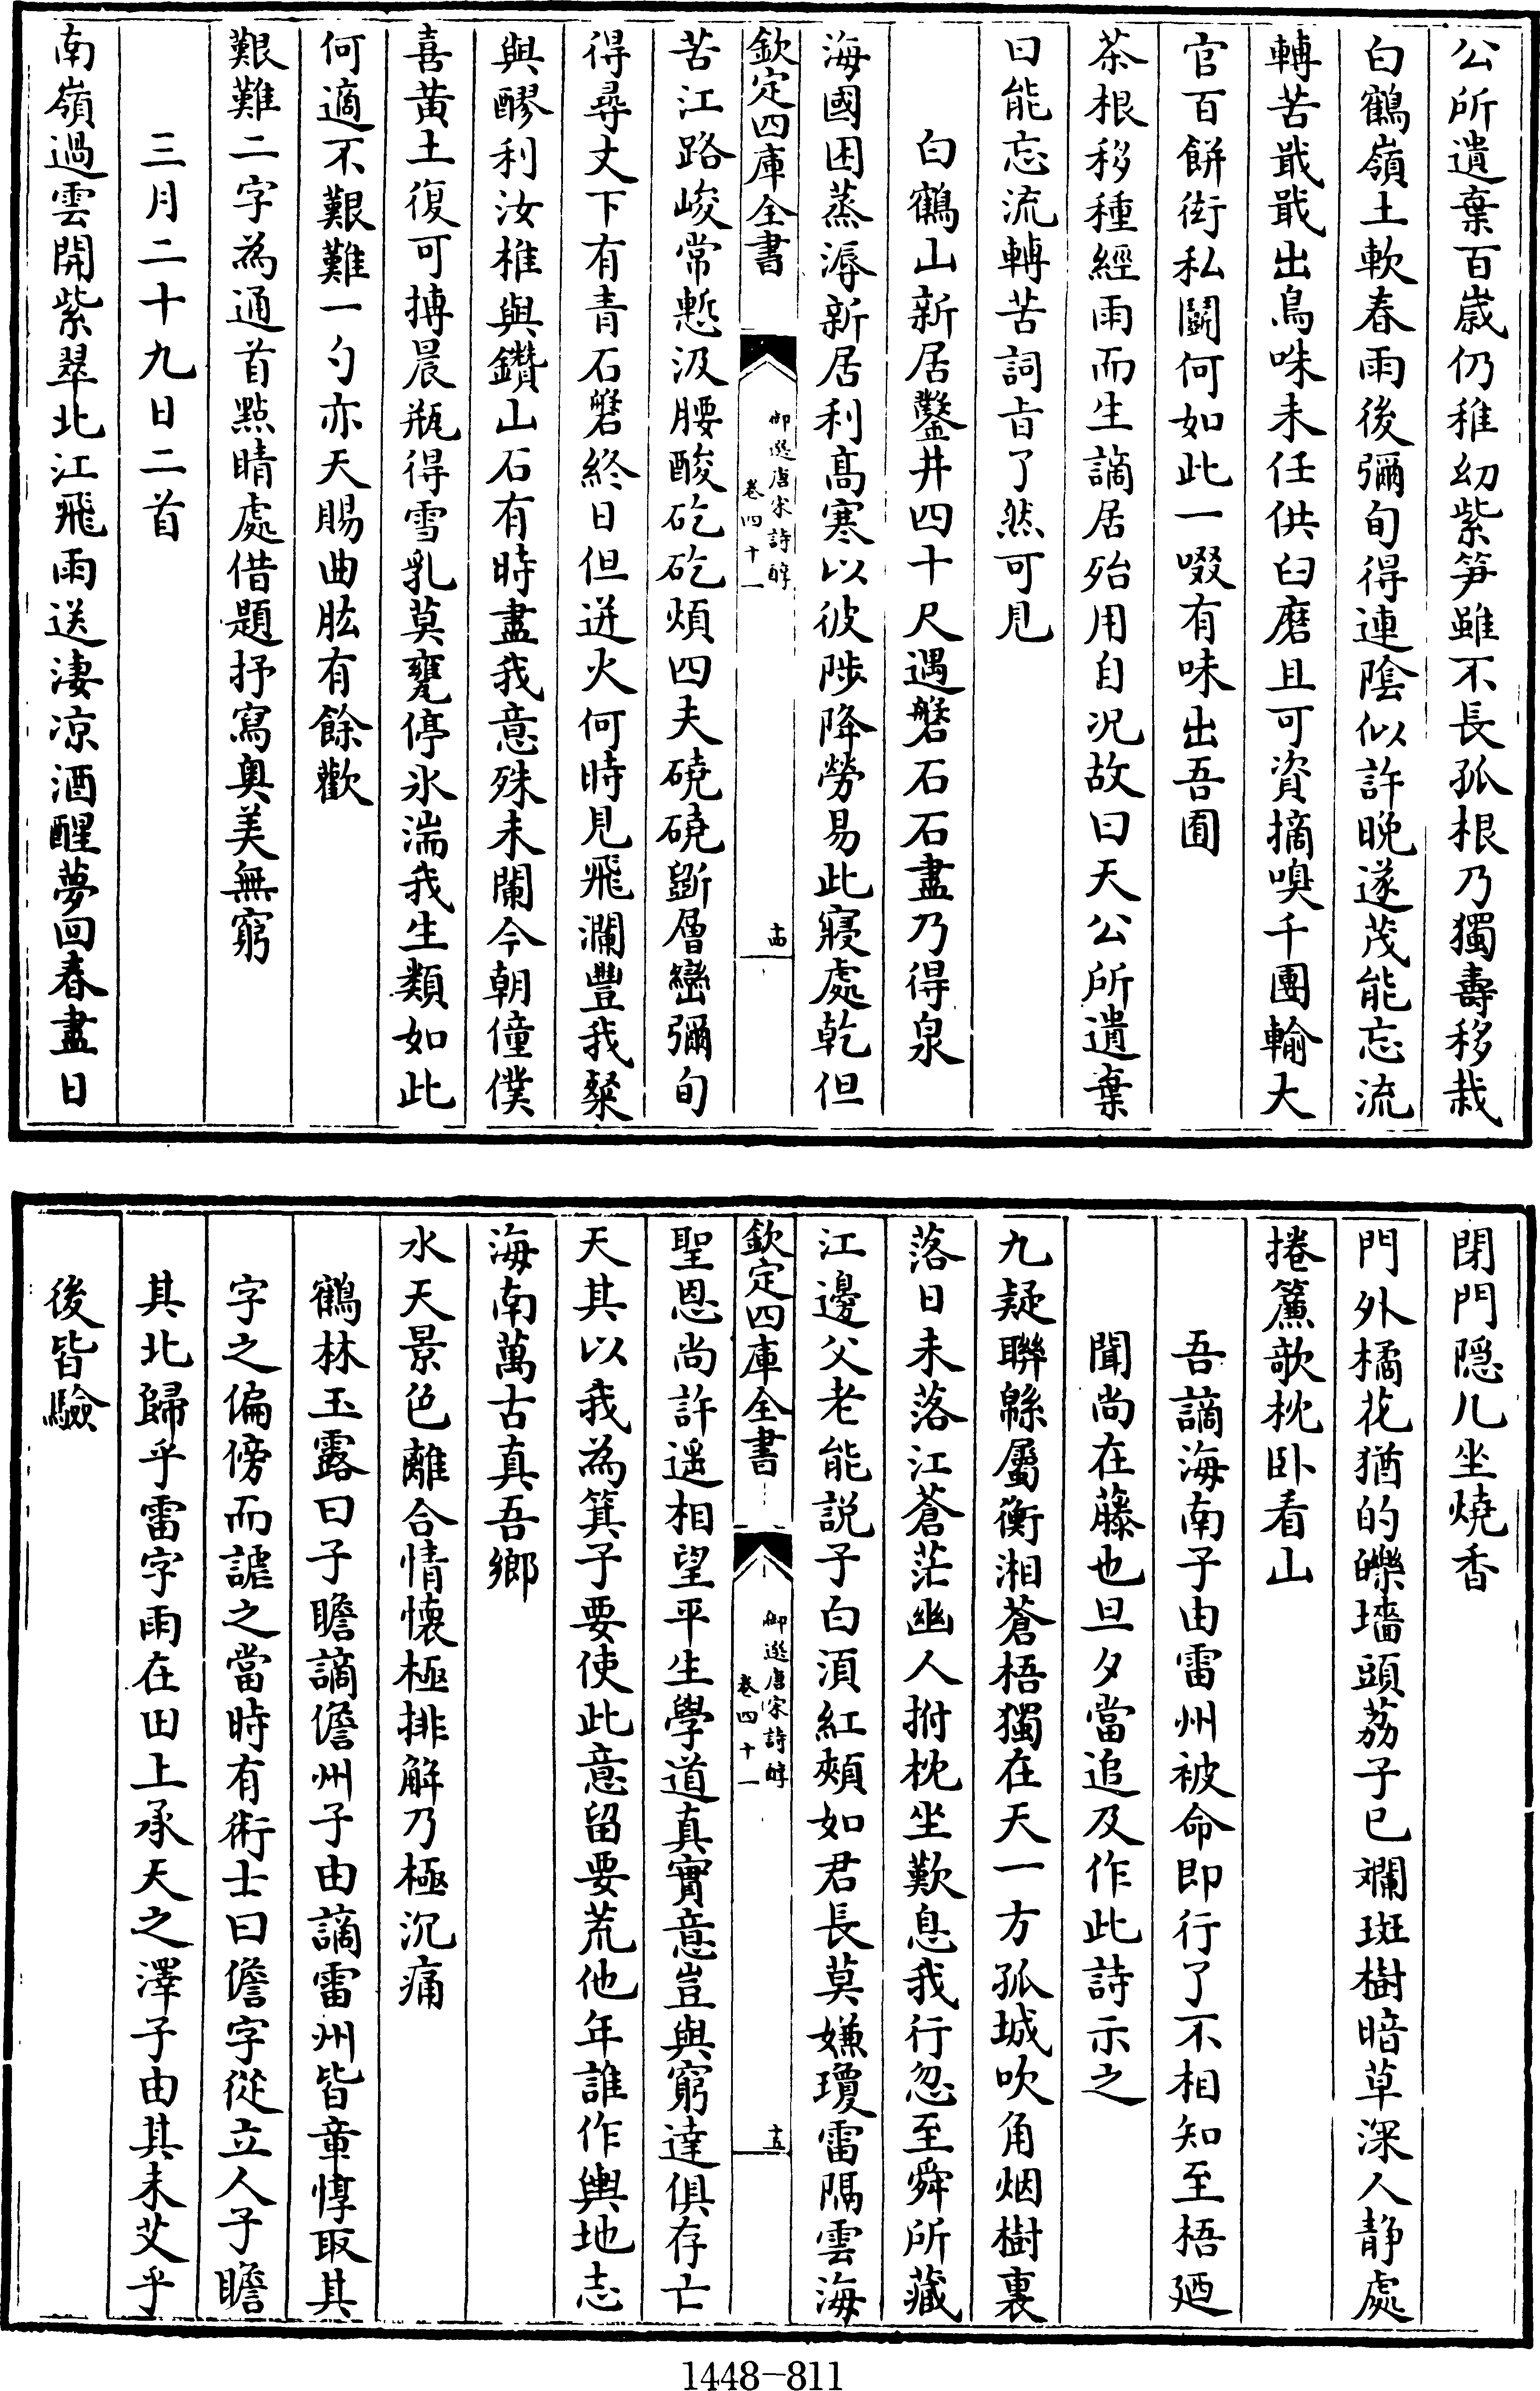 公所遺棄百嵗仍稚幼紫笋雖不長孤根乃獨壽移栽
白鶴嶺土軟春雨後彌旬得連陰似許晚遂茂能忘流
轉苦戢戢出鳥咮未任供臼磨且可資摘嗅千團輸大
官百餅衒私鬭何如此一啜有味出吾囿
茶根移種經雨而生謫居殆用自况故曰天公所遺棄
曰能忘流轉苦詞㫖了然可見
白鶴山新居鑿井四十尺遇磐石石盡乃得泉
海國困蒸溽新居利髙寒以彼陟降勞易此寢處乾但
欽定四庫全書
御選唐宋詩醇
卷四十一
十四
苦江路峻常慙汲腰酸矻矻煩四夫磽磽斵層巒彌旬
得尋丈下有青石磐終日但迸火何時見飛瀾豐我粲
與醪利汝椎與鑽山石有時盡我意殊未闌今朝僮僕
喜黄土復可摶晨瓶得雪乳莫甕停氷湍我生類如此
何適不艱難一勺亦天賜曲肱有餘歡
艱難二字為通首點睛處借題抒寫奥美無窮
三月二十九日二首
南嶺過雲開紫翠北江飛雨送淒凉酒醒夢回春盡日
閉門隠几坐燒香
門外橘花猶的皪墻頭荔子已斕斑樹暗草深人静處
捲簾欹枕卧看山
吾謫海南子由雷州被命即行了不相知至梧廼
聞尚在藤也旦夕當追及作此詩示之
九疑聯緜屬衡湘蒼梧獨在天一方孤城吹角烟樹裏
落日未落江蒼茫幽人拊枕坐歎息我行忽至舜所藏
江邊父老能説子白湏紅頰如君長莫嫌瓊雷隔雲海
欽定四庫全書
御選唐宋詩醇
卷四十一
十五
聖恩尚許遥相望平生學道真實意豈與窮達俱存亡
天其以我為箕子要使此意留要荒他年誰作輿地志
海南萬古真吾鄉
水天景色離合情懐極排解乃極沉痛
鶴林玉露曰子瞻謫儋州子由謫雷州皆章惇取其
字之偏傍而謔之當時有術士曰儋字從立人子瞻
其北歸乎雷字雨在田上承天之澤子由其未艾乎
後皆驗
1448-811